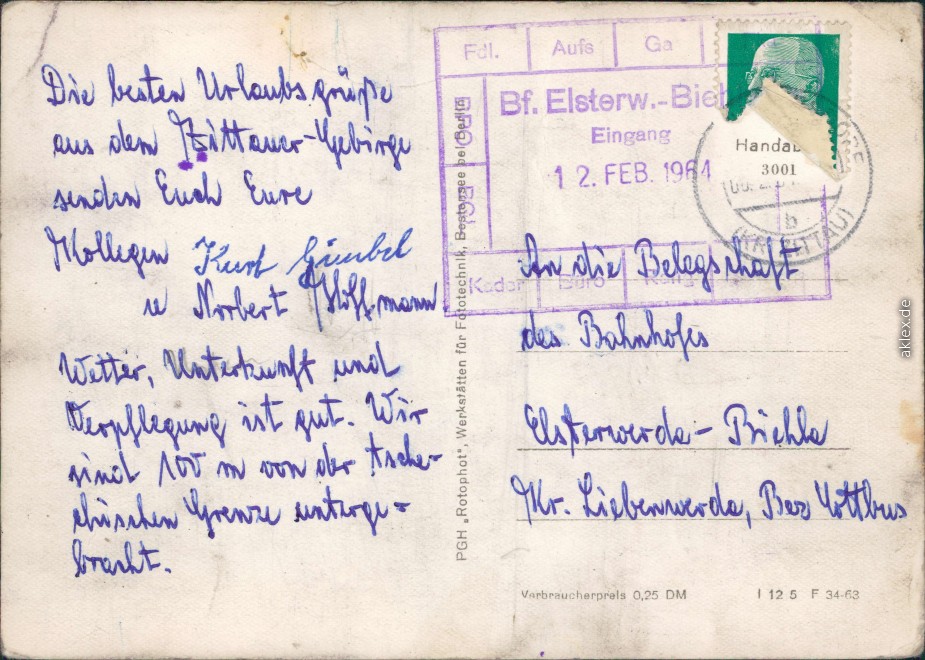 Die besten Urlaubsgrüße
aus dem Zittauer-Gebirge
senden Euch Eure
Kollegen Kurt Gimbel
u Norbert Hoffmann
Wetter, Unterkunft und
Verpflegung ist gut. Wir
sind 100 m von der tsche-
chischen Grenze unterge-
bracht.
PGH „Rotophot", Werkstätten für Fototechnik, Bestensee bei Berlin
Fdl. Aufs Ga
Bf. Elsterw.-Bieh
Eingang
12. FEB. 1964
Kader Büro
Handab
3001
b
ZITTAU)
An die Belegschaft
des Bahnhofes
Elsterwerda-Biehla
Kr. Liebenwerda, Bez Cottbus
Verbraucherpreis 0,25 DM I 12 5 F 34-63
aklex.de